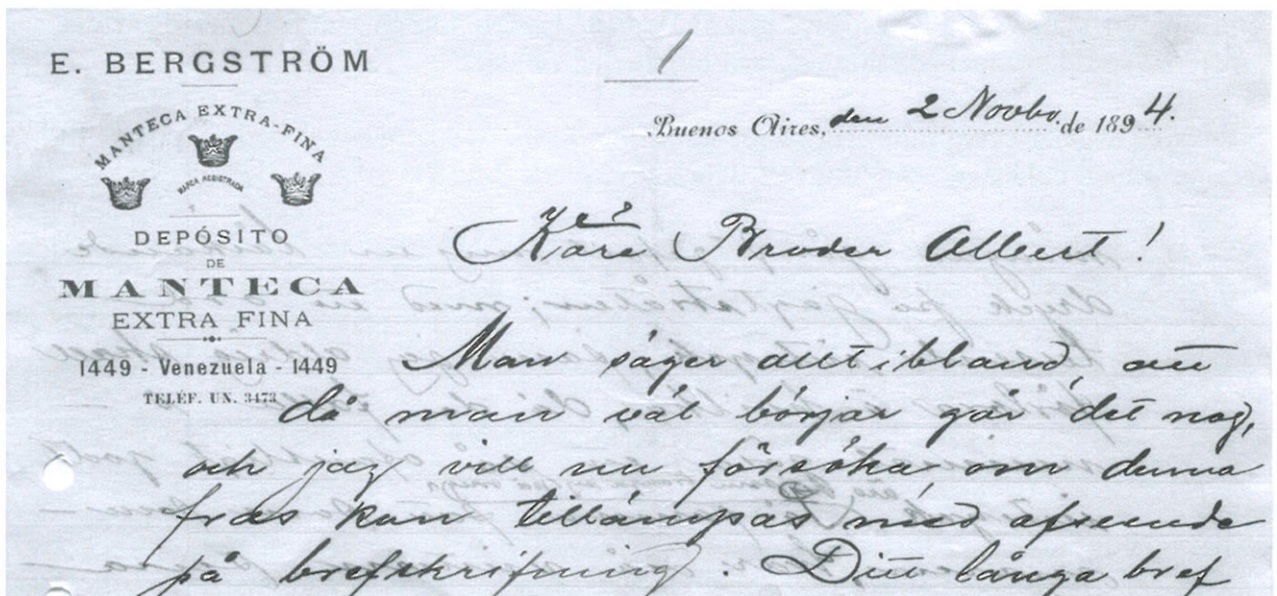 E. BERGSTRÖM
MANTECA EXTRA-FINA
MARCA REGISTRADA
DEPÓSITO
DE
MANTECA
EXTRA FINA
1449 - Venezuela - 1449
TELÉF. UN. 3473
1
Buenos Aires, den 2 Novbr. de 1894.
Käre Broder Albert!
Man säger allt ibland, att
då man väl börjar går det nog,
och jag vill nu försöka om denna
fras kan tillämpas med afseende
på brefskrifning. Ditt långa bref